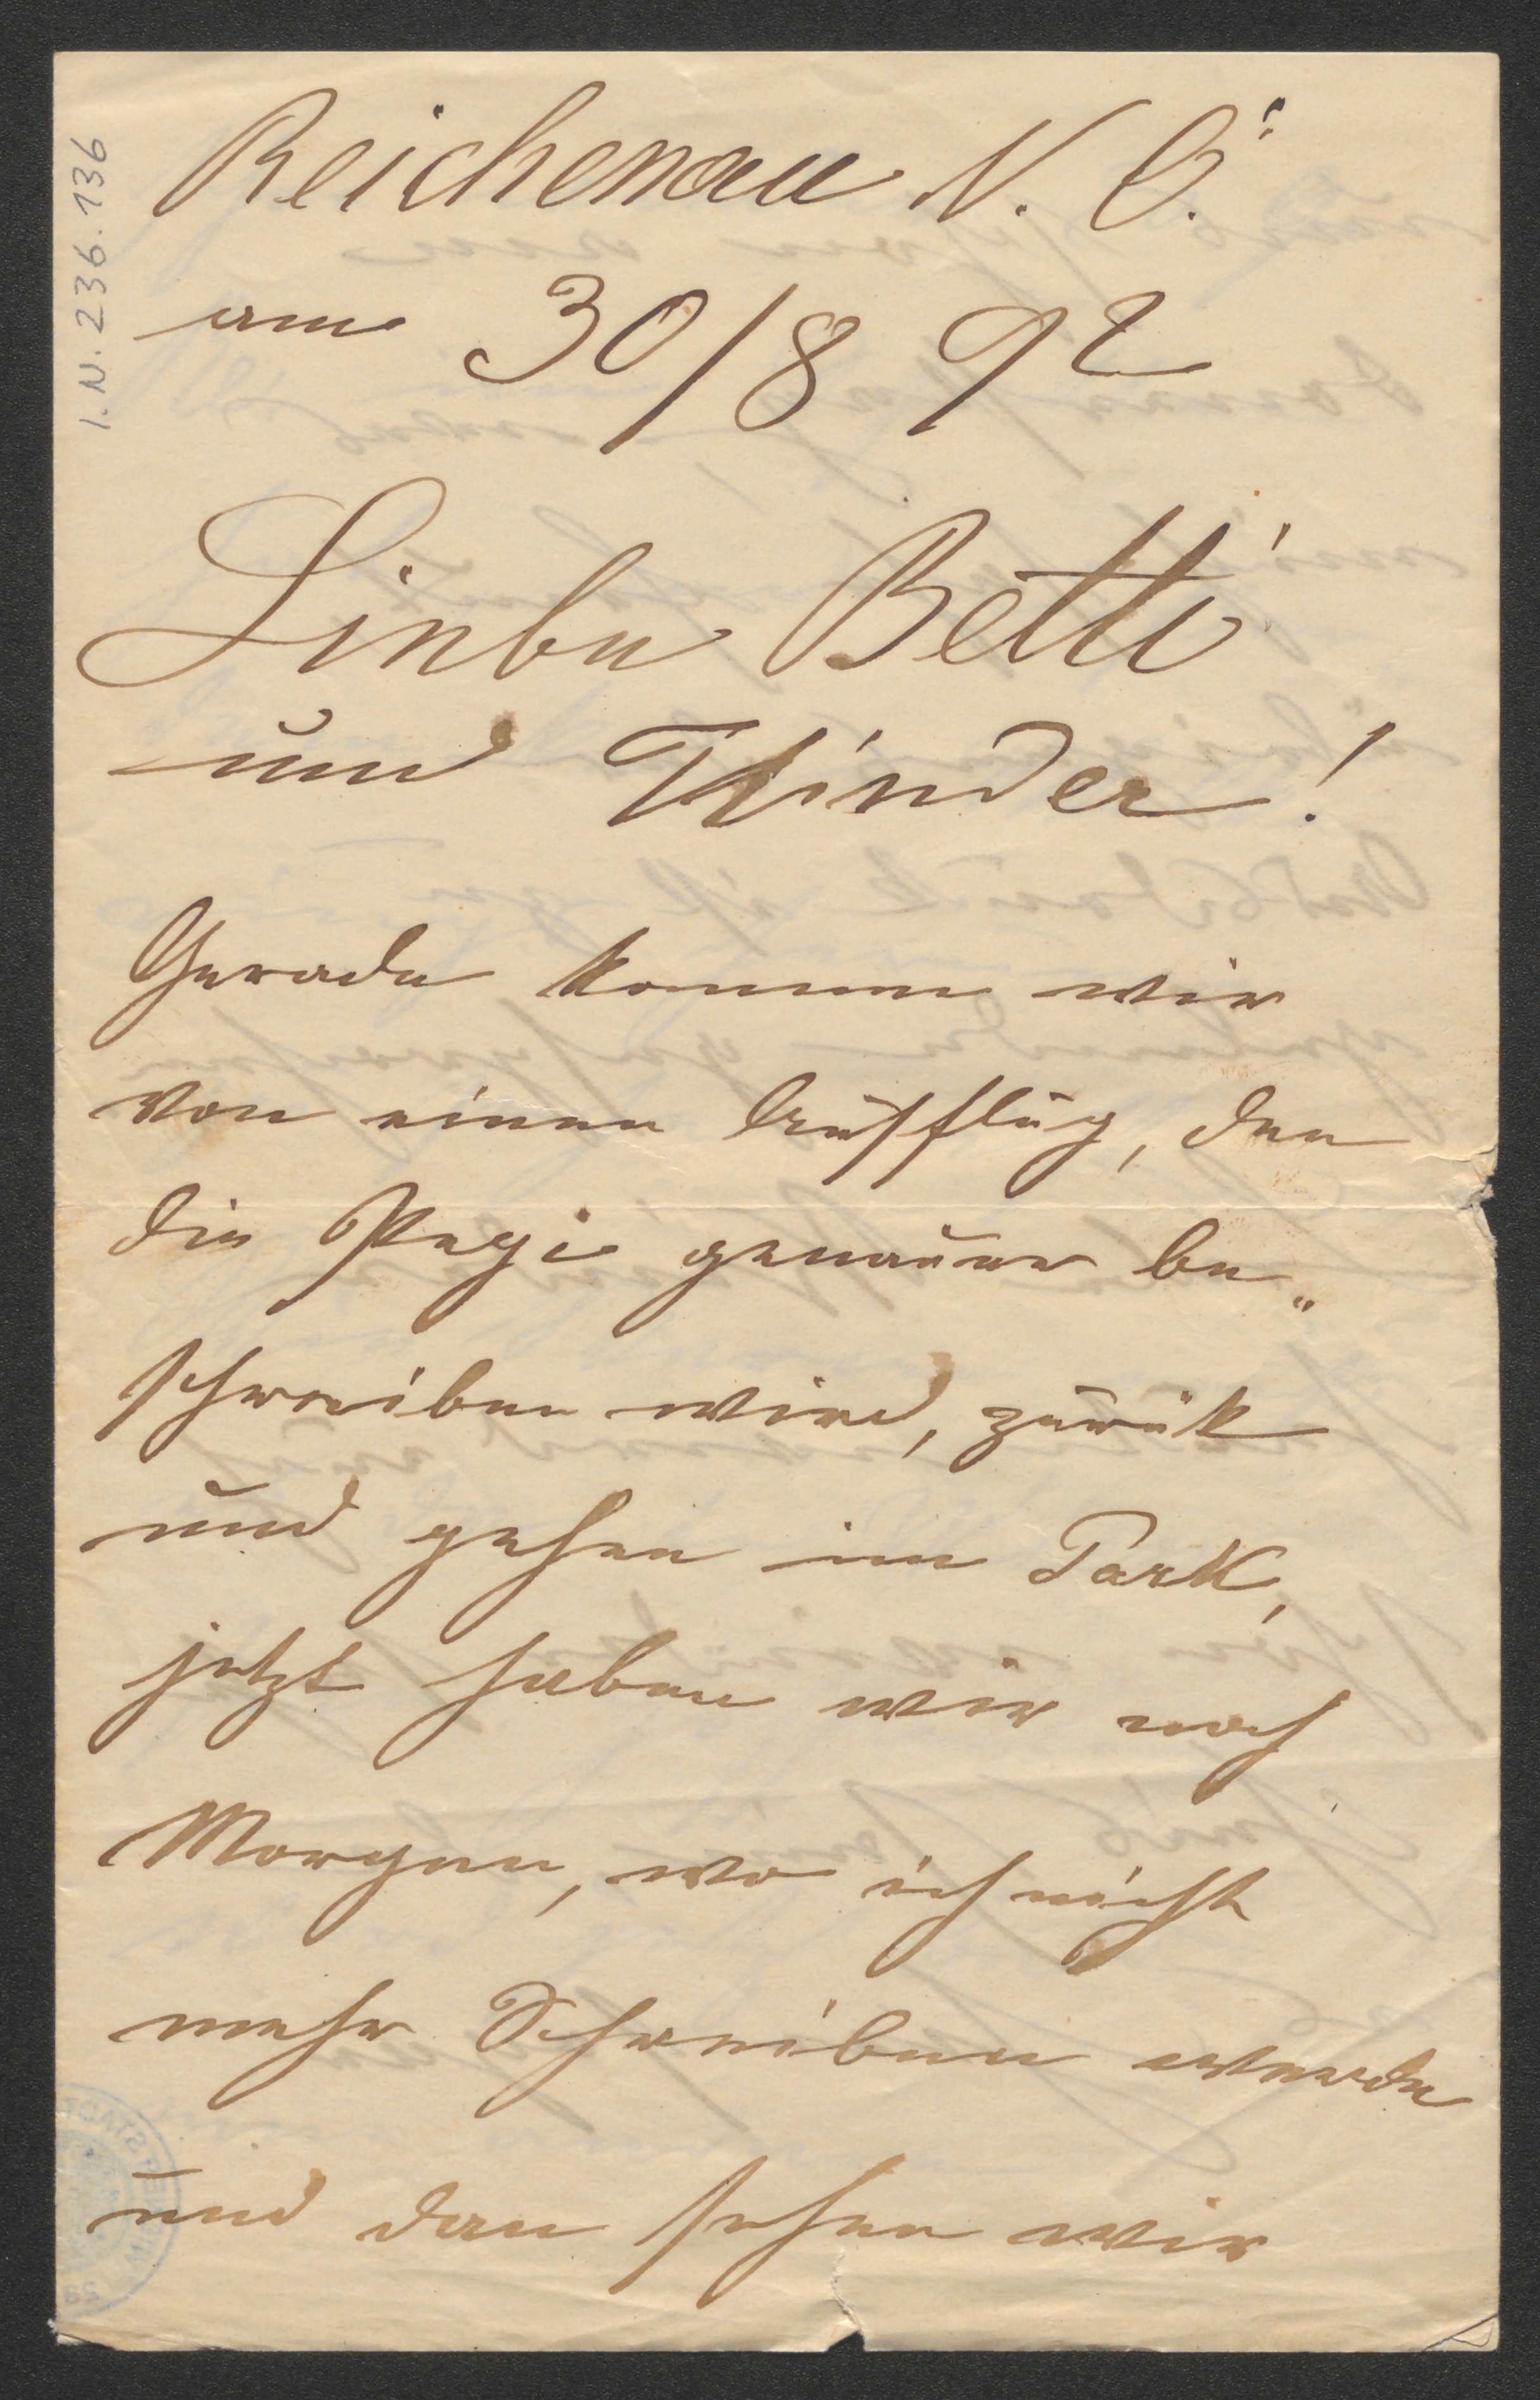 I.N. 236.136
Reichenau N. Ö.
am 30/8 92
Liebe Betti
und Kinder!
Gerade kommen wir
von einen Ausflug, den
die Pepi genauer be„
schreiben wird, zurük
und gehen im Park,
jetzt haben wir noch
Morgen, wo ich nicht
mehr Schreiben werde
und dan sehen wir